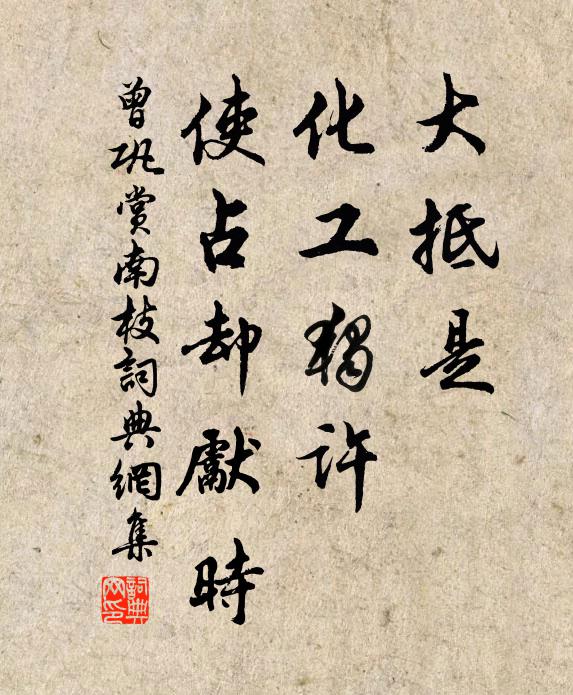 大抵是
化工獨許
使占却獻時
曾巩賞南枝詞典網集
詞典网印